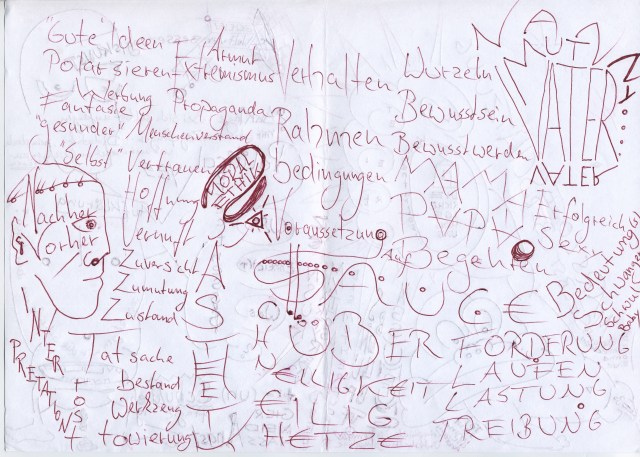 "Gute" Ideen
Armut
Polarisieren Extremismus
Werbung Propaganda
Fantasie
"gesunder" Menschenverstand
"Selbst" Vertrauen
Hoffnung
Vernunft
Zuversicht
Zumutung
Zustand
Nachher
Vorher
INTER
PRETATIONS
Tatsache
bestand
Werkzeug
towierung
MORAL
ETHIK
ÄSTHETIK
Verhalten
Rahmen
bedingungen
Voraussetzung
Wurzeln
Bewusstsein
Bewusstwerden
MAMA
PAPA
Auf
Begehren
NATZ
VATER
VATER
Erfolgreich
Sexy
Bedeutung
Schwanger
AUGE
ÜBER FORDERUNG
LAUFEN
LASTUNG
TREIBUNG
SCHNELLIGKEIT
EILIG
HETZE